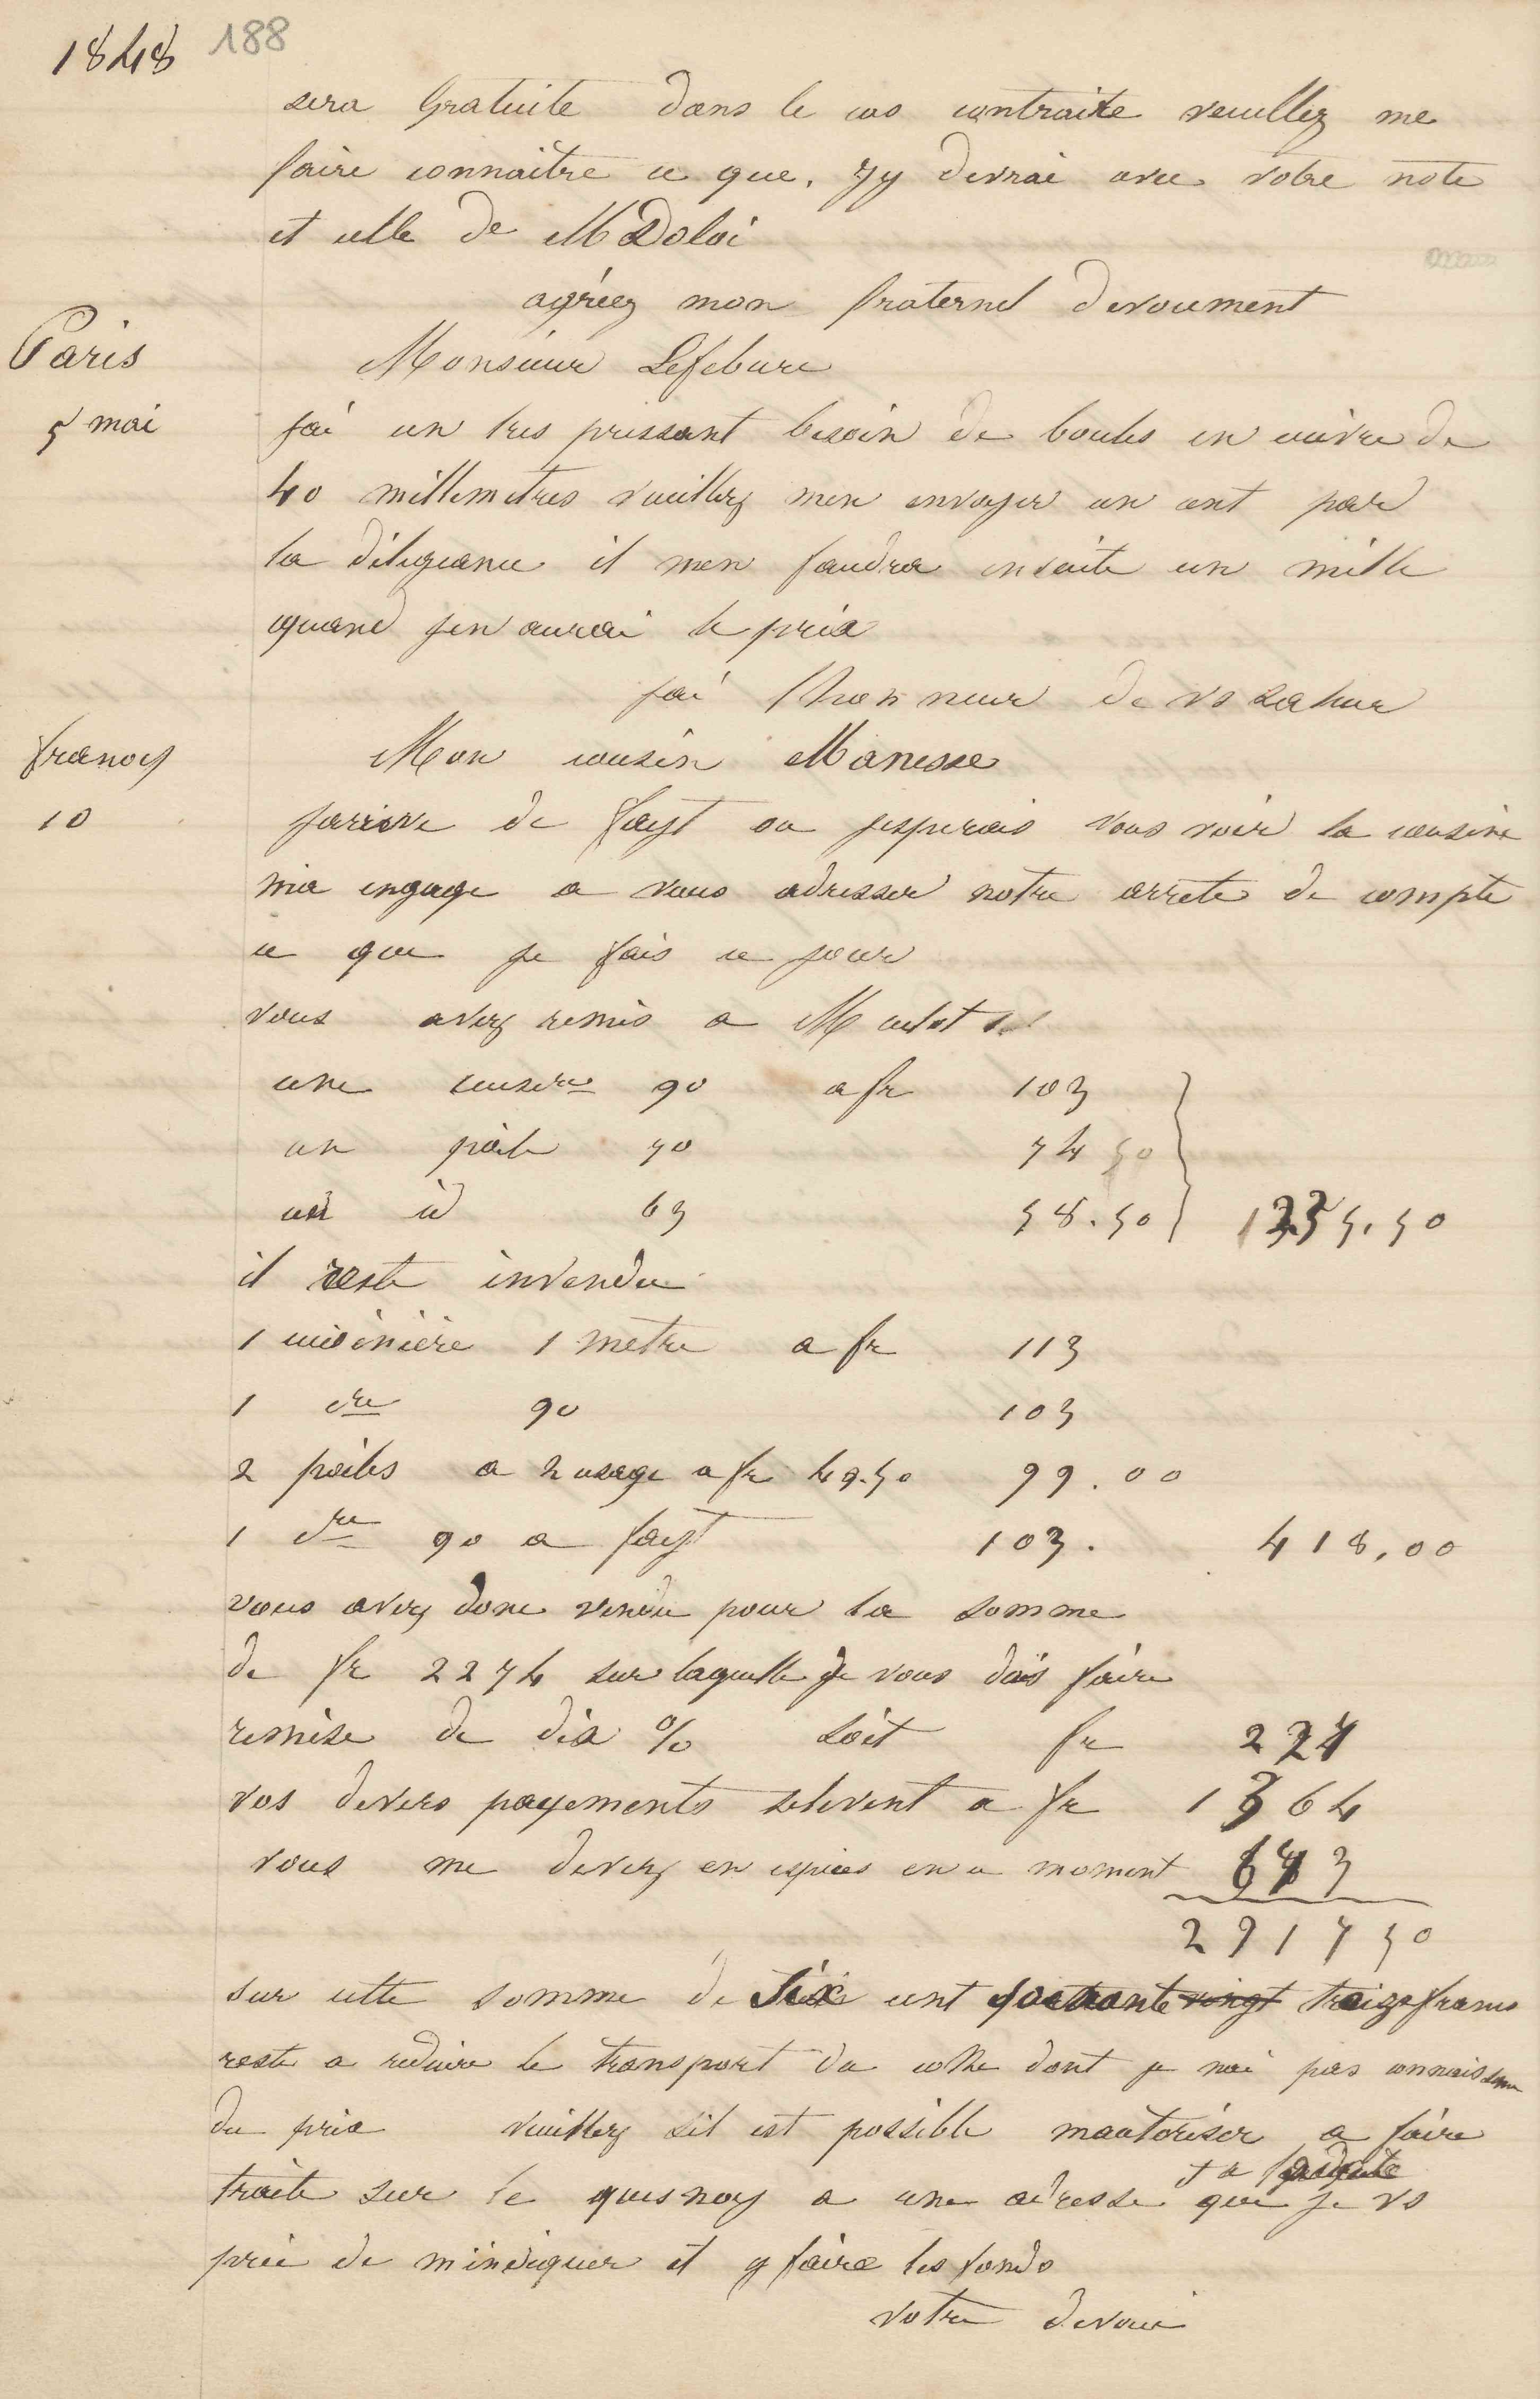 1848 188
sera Gratuite dans le cas contraire veuillez me
faire connaitre ce que jy devrai avec votre note
et celle de M Doloi
agréez mon fraternel devoument
Paris Monsieur Lefebure
5 mai jai un tres pressant besoin de boules en cuivre de
40 millimetres vueillez men envoyer un cent par
la diligeance il men faudra ensuite un mille
quand jen aurai le prix
jai lhonneur de vs saluer
franoy Mon cousin Manesse
10 jarrive de fayt ou jesperais vous voir la cousine
ma engage a vous adresser notre arrete de compte
ce que je fais ce jour
vous avez remis a M
une 90 a fr 103
un poile 70 74 50
un id 63 58.50 5.50
il reste invendu
1 cuisinière 1 metre a fr 113
1 dre 90 103
2 poiles a 2 usage a fr 49.50 99.00
1 dre 90 a fayt 103. 418,00
vous avez donc vendu pour la somme
de fr 2274 sur laquelle je vous dois faire
remise de dix % soit fr 227
vos divers payements selevent a fr 1364
vous me devez en especes en ce moment 673
2917 50
sur cette somme de Six cent soixante vingt treize francs
reste a reduire le transport du coke dont je nai pas connaissance
du prix vueillez sil est possible mautoriser a faire
traite sur le quesnoy a une adresse que je vs
prie de mindiquer et y faire les fonds
votre devoué